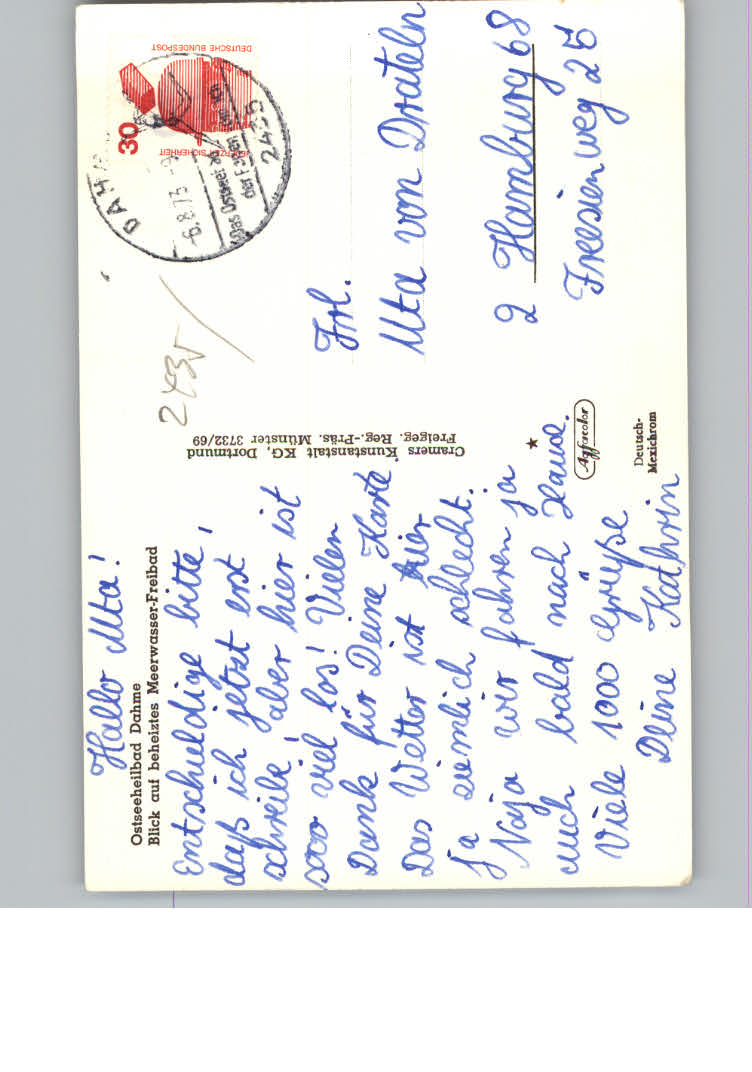 Hallo Uta!
Ostseeheilbad Dahme
Blick auf beheiztes Meerwasser-Freibad
Entschuldige bitte,
daß ich jetzt erst
schreibe! aber hier ist
sooo viel los! Vielen
Dank für Deine Karte
Das Wetter ist hier
ja ziemlich schlecht.
Naja wir fahren ja
auch bald nach Hause.
Viele 1000 Grüße
Deine Kathrin
Cramers Kunstanstalt KG, Dortmund
Freigeg. Reg.-Präs. Münster 3732/69
★
Agfacolor
Deutsch-
Mexichrom
2435
DEUTSCHE BUNDESPOST
30
JEDERZEIT SICHERHEIT
DAHM
-6.8.73-
Das Ostseebad
2435
Frl.
Uta von Drateln
2 Hamburg 68
Freesienweg 25